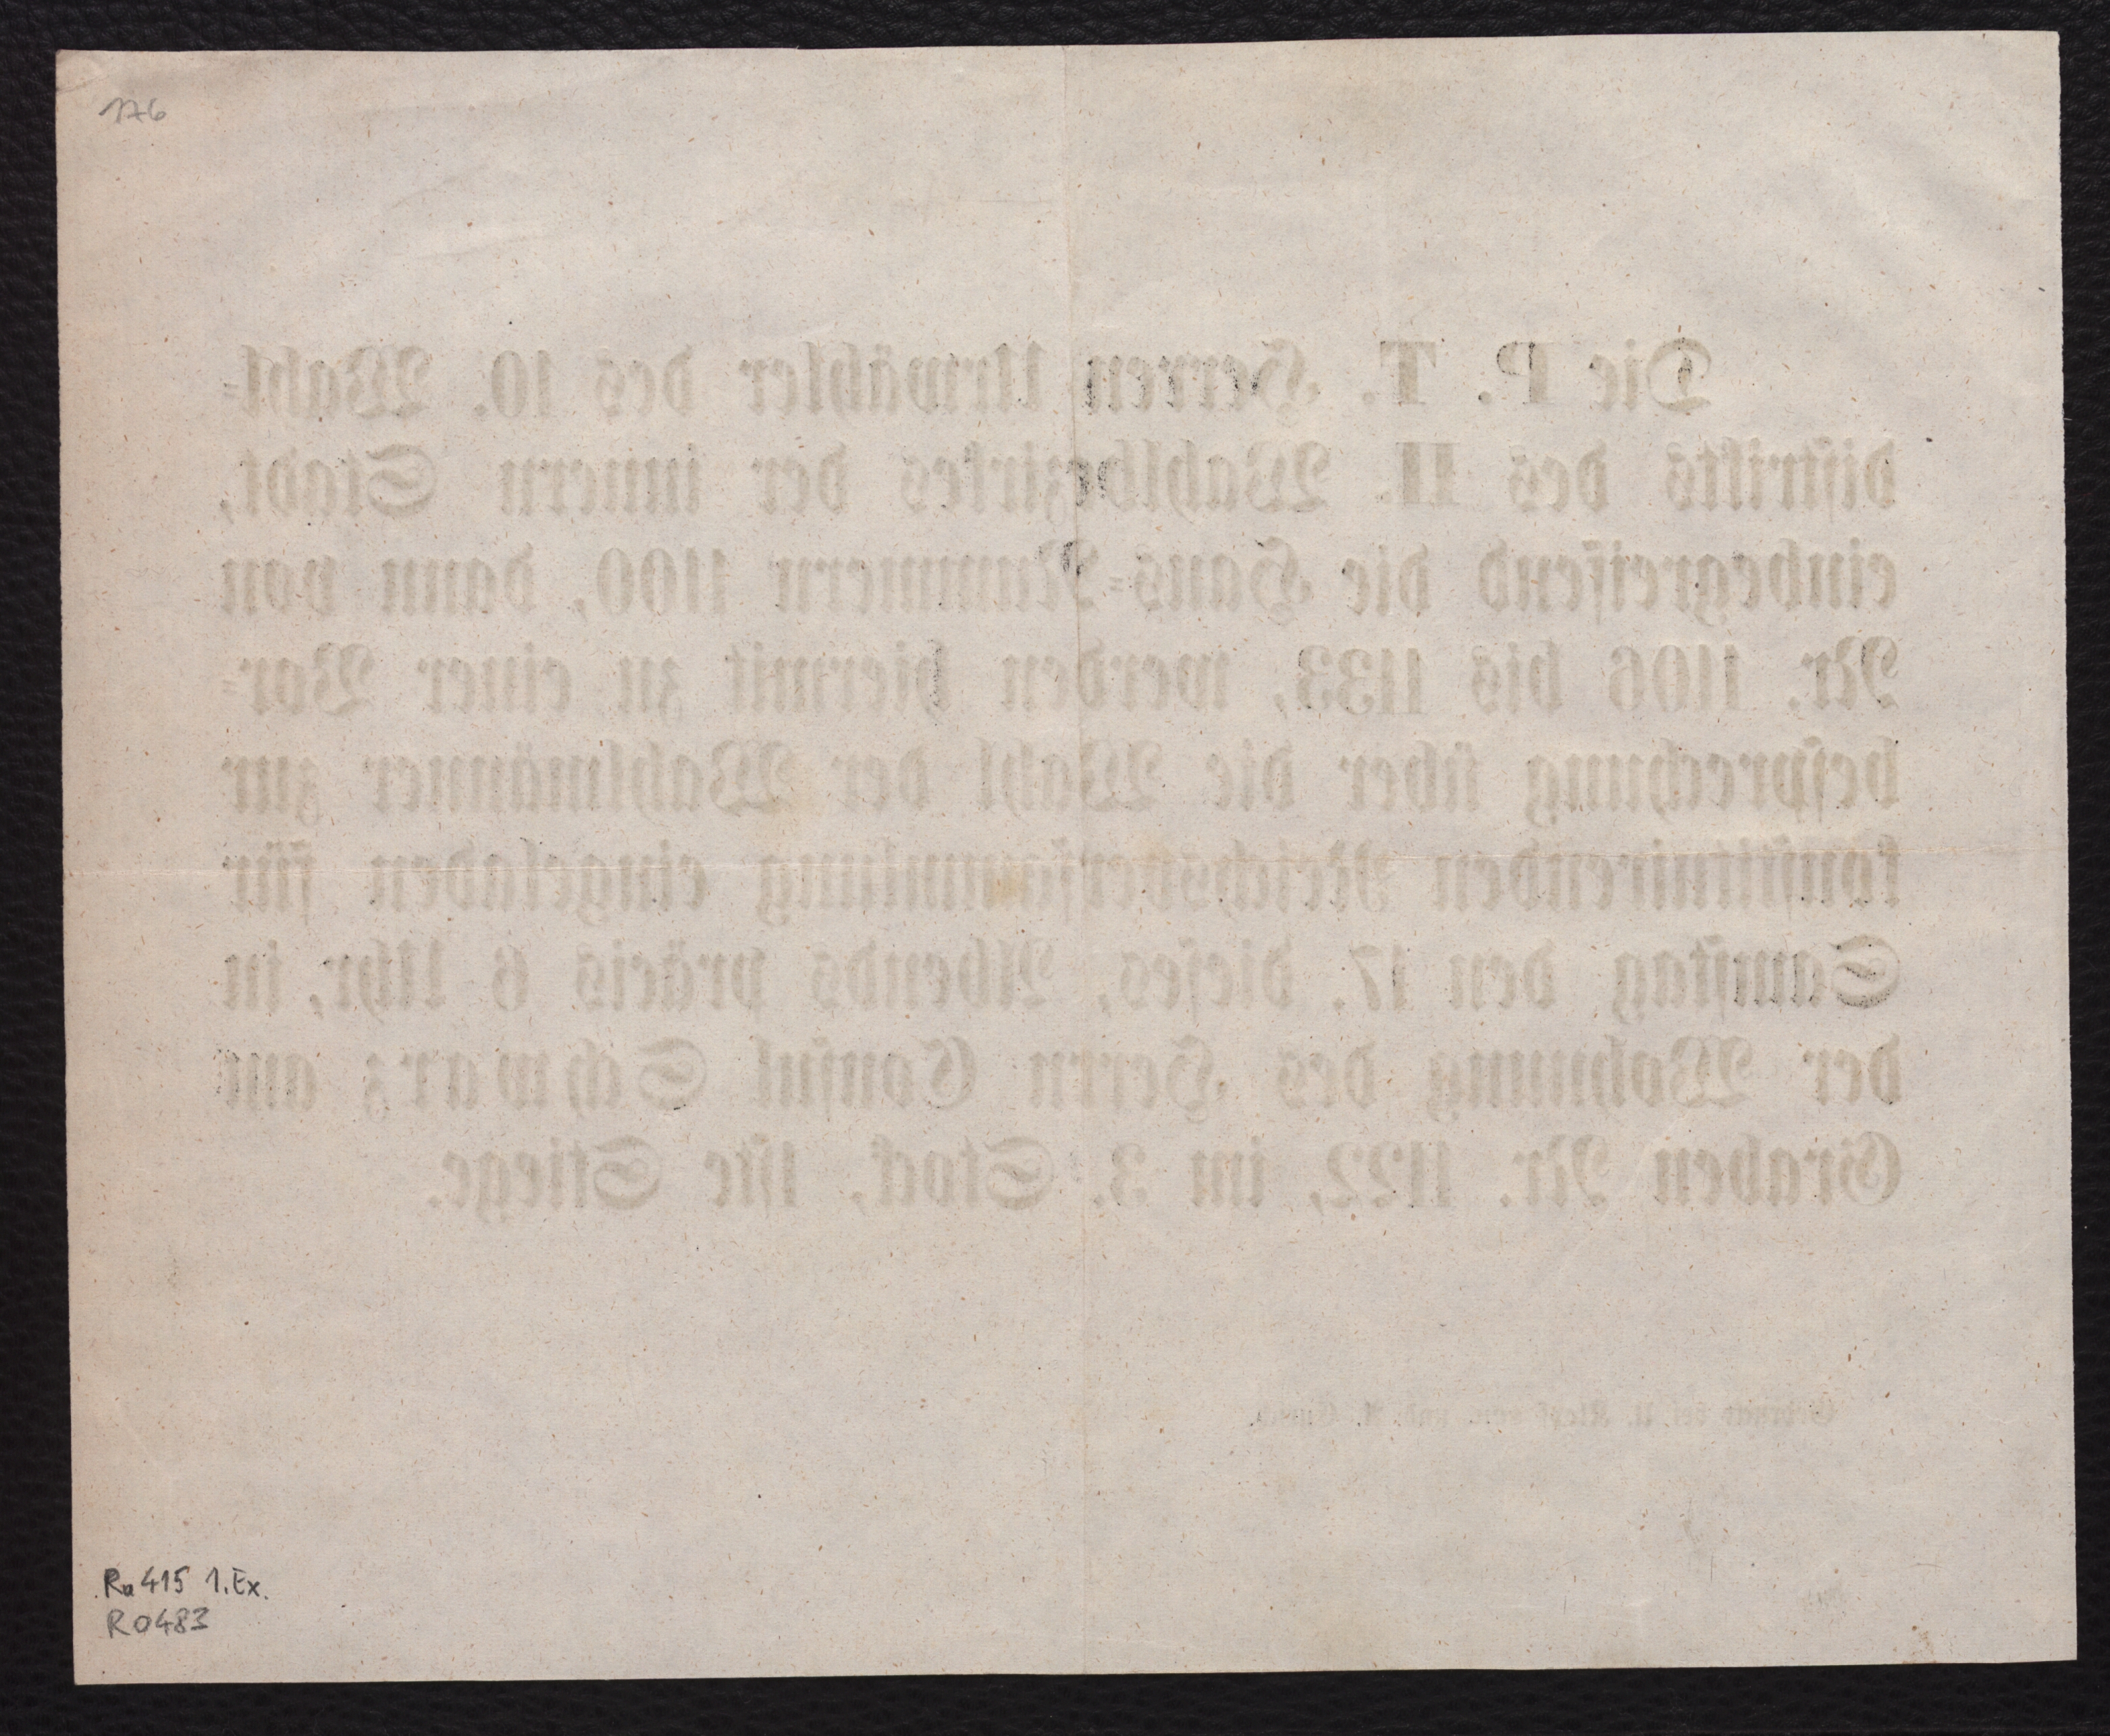 176
Die P. T. Herren Urwähler des 10. Wahl-
distrikts des II. Wahlbezirkes der innern Stadt,
einbegreifend die Haus-Nummern 1100, dann von
Nr. 1106 bis 1133, werden hiermit zu einer Vor-
besprechung über die Wahl der Wahlmänner zur
konstituirenden Reichsversammlung eingeladen für
Samstag den 17. dieses, Abends präcis 6 Uhr, in
der Wohnung des Herrn Consul Schwarz am
Graben Nr. 1122, im 3. Stock, 1ste Stiege.
Gedruckt bei U. Klopf sen. und A. Eurich.
Ra 415 1. Ex.
R0483